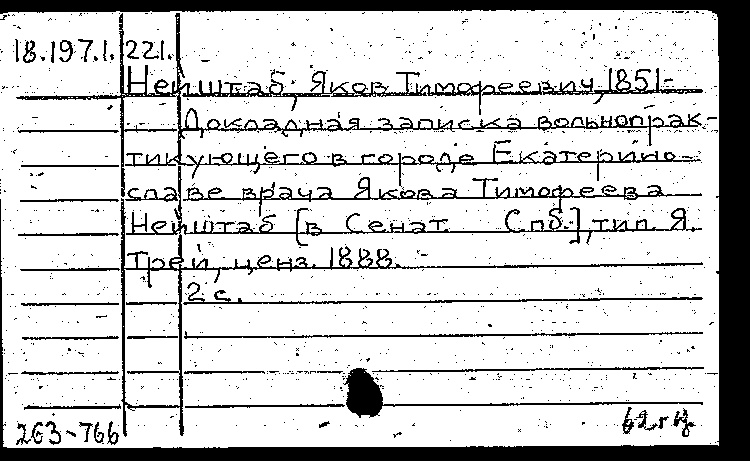 18.197.1.221.
Нейштаб, Яков Тимофеевич, 1851-
Докладная записка вольнопрак-
тикующего в городе Екатерино-
славе врача Якова Тимофеева
Нейштаб [в Сенат Спб.], тип. Я.
Трей, ценз. 1888.
2 с.
263-766